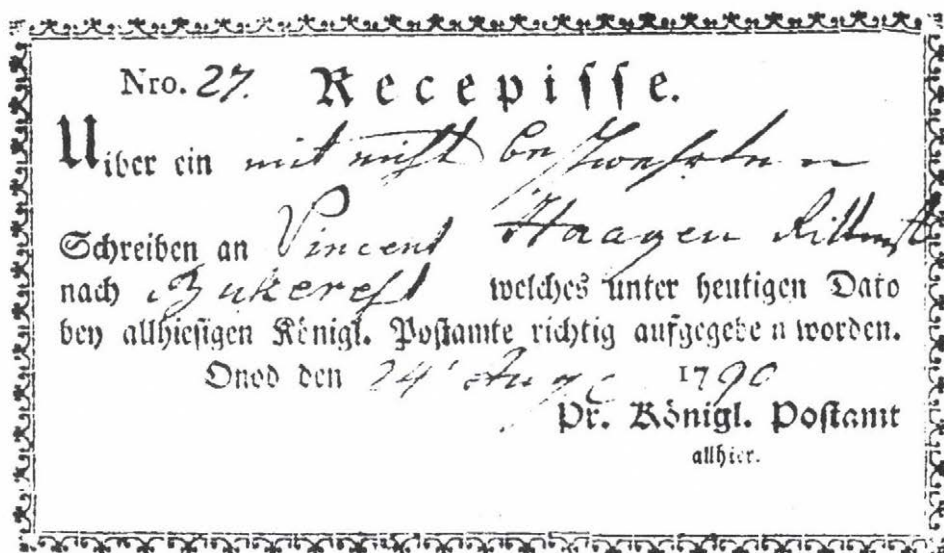 Nro. 27. Recepisse.
Uiber ein mit nicht beschwehrten
Schreiben an Vincent Haagen Rittmst
nach Bukerest welches unter heutigen Dato
bey allhiesigen Königl. Postamte richtig aufgegeben worden.
Onod den 24t Aug 1790
Pr. Königl. Postamt
allhier.